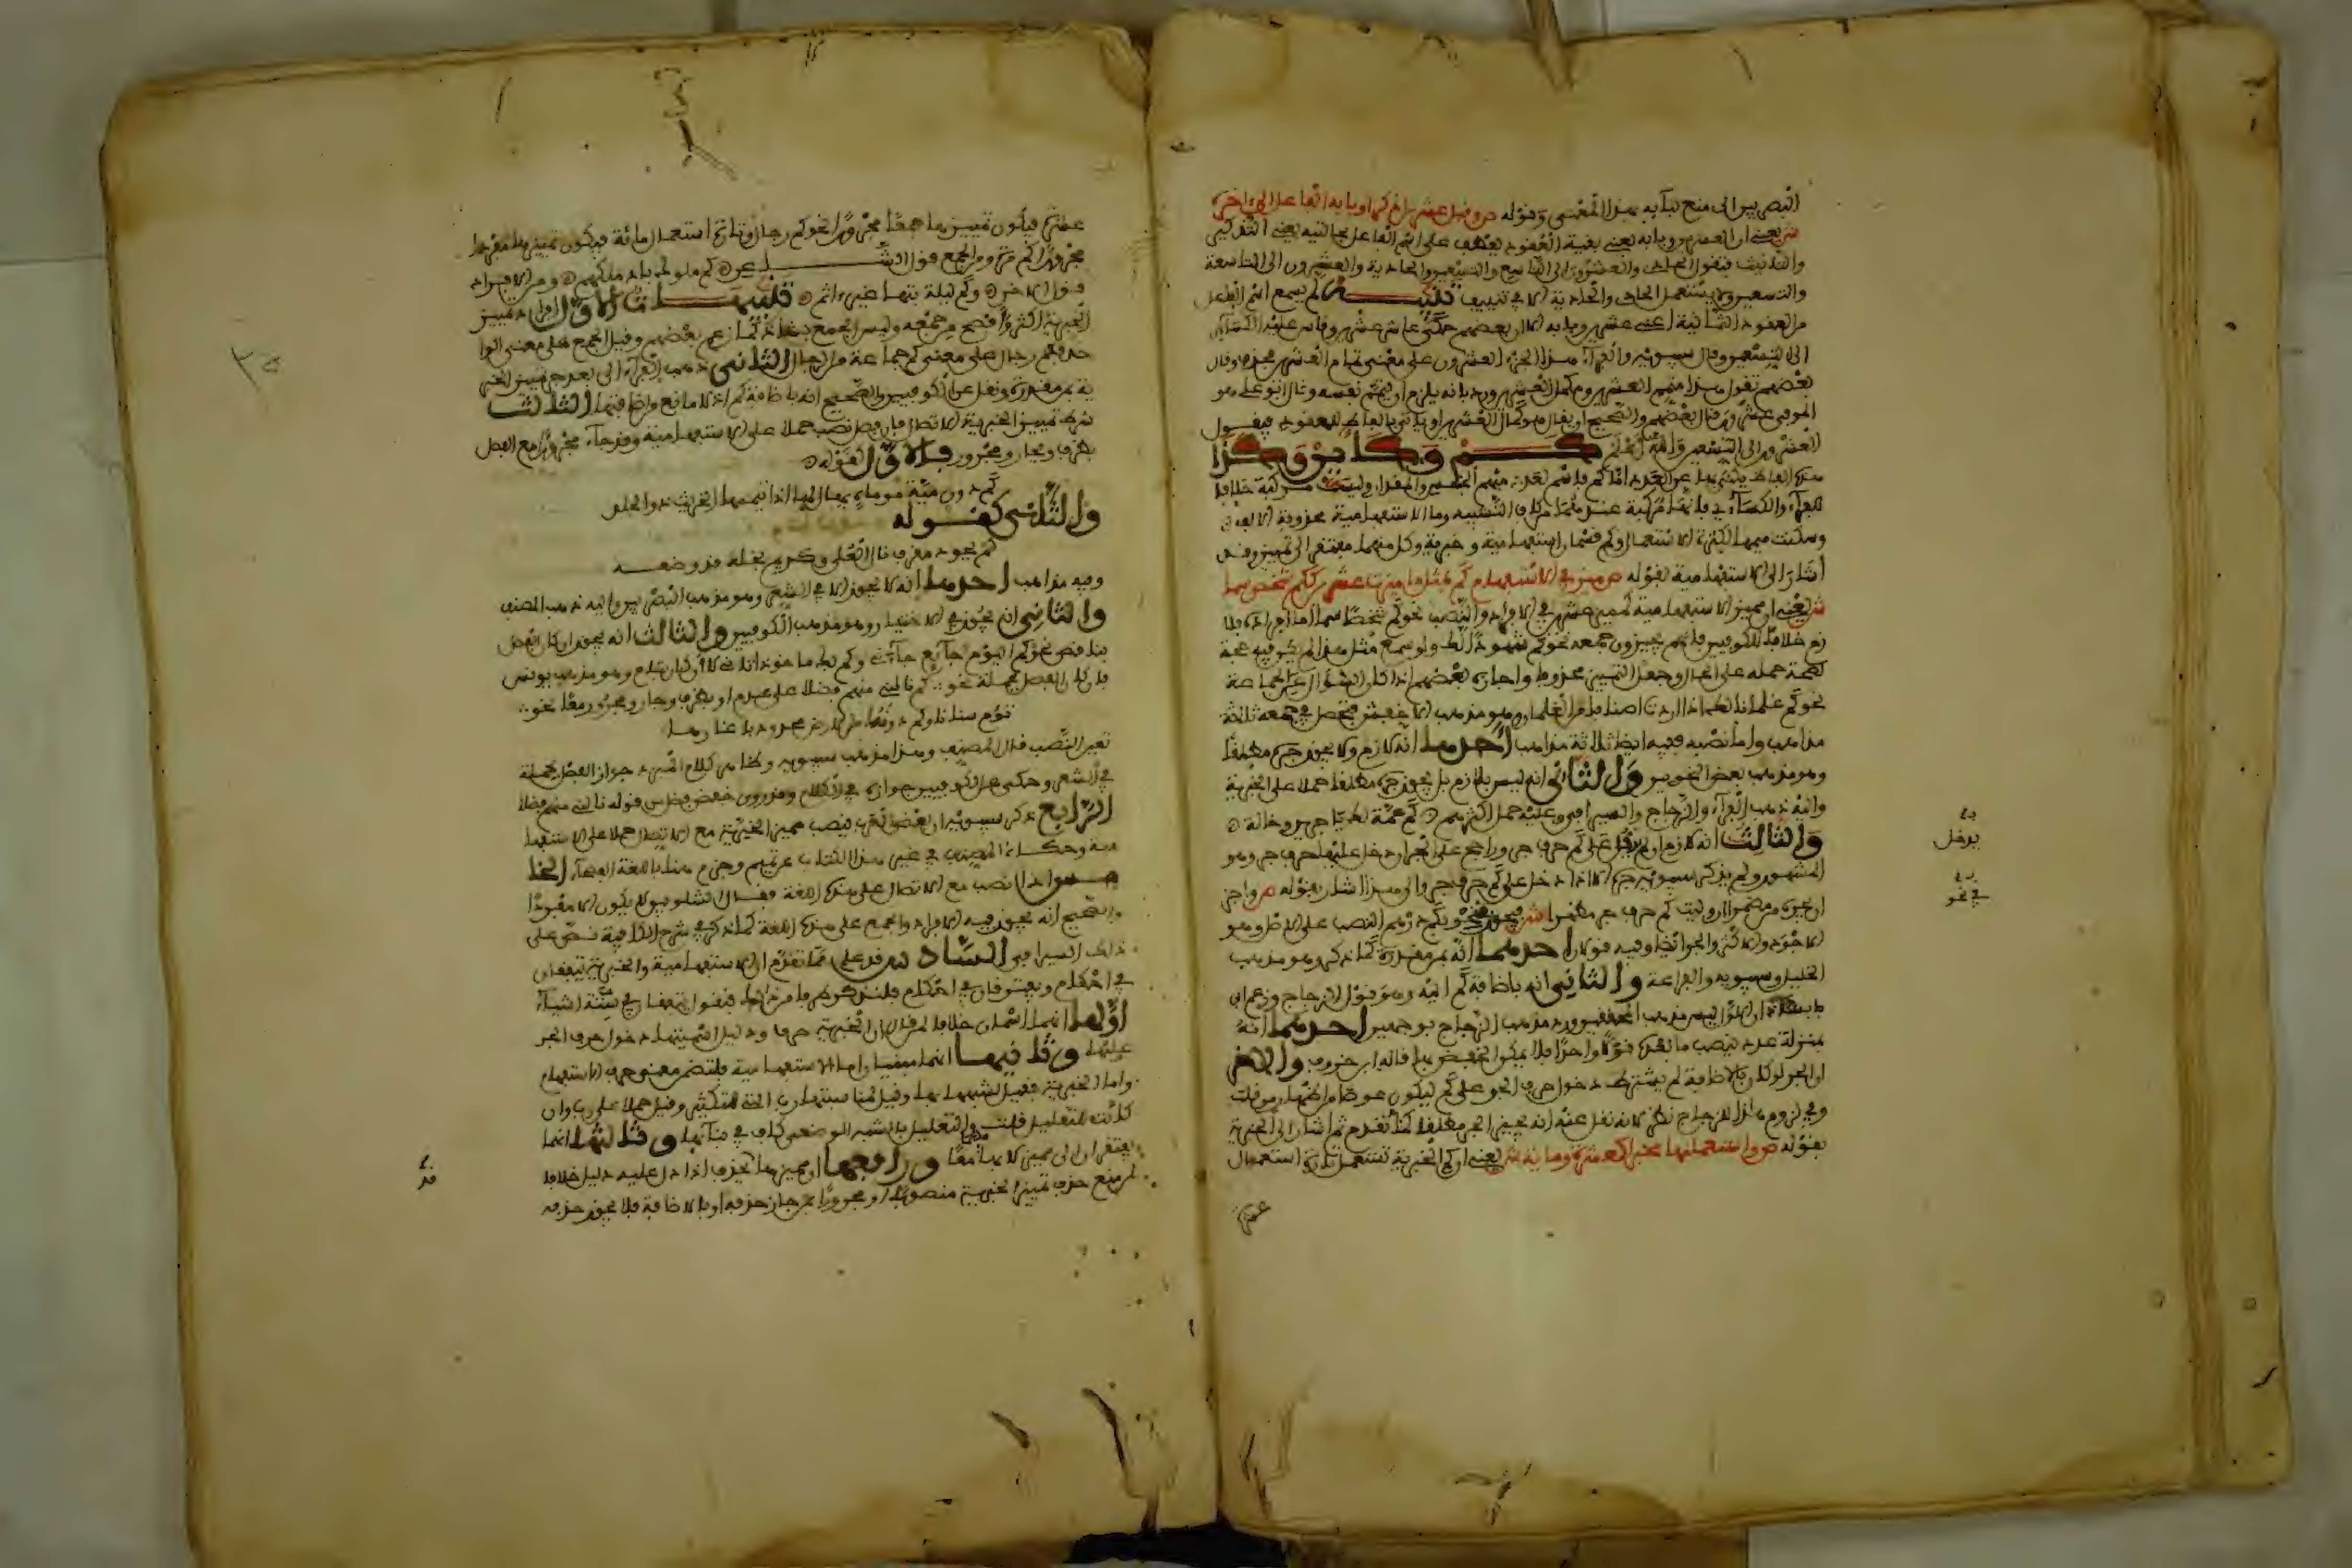 البصريين إلى منع بنآيه بهذا المعنى وقوله ص وقبل عشرين اذكرا وبابه الفاعل
ش يعني ان العشرين وبابه يعني بقية العقود يعطف على اسم الفاعل بحالتيه يعني التذكير
والتانيث فتقول الحادي والعشرون الى التاسع والتسعين والحادية والعشرون الى التاسعة
والتسعين ولا يستعمل الحادي والحادية الا في تنييف تنبيه لم يسمع اسم الفاعل
من العقود الثمانية اعني عشرين وبابه الا ان بعضهم حكى عاشر عشرين وقاس عليه الكسآي
الى التسعين وقال سيبويه والفرآء هذا الجزء العشرون على معنى تمام العشرين فحذف وقال
بعضهم تقول هذا متمم العشرين ومكمل العشرين ورد بانه يلزم ان يتمم نفسه وقال ابو علي هو
الموفي عشرين وقال بعضهم والصحيح ان يقال هو كمال العشرين او ياتي بالفاظ العقود فيقول
العشرون الى التسعين والله اعلم كم وكاين وكذا
هذه الفاظ يكنى بها عن العدد اما كم فاسم لعدد مبهم الجنس والمقدار وليست مركبة خلافا
للفرآء والكسآءي فانها مركبة عندهما من كاف التشبيه وما الاستفهامية محذوفة الالف
وسكنت ميمها لكثرة الاستعمال وكم قسمان استفهامية وخبرية وكل منهما مفتقر الى تمييز وقد
اشار الى الاستفهامية بقوله ص ميز في الاستفهام كم بمثل ما ميزت عشرين ككم شخصا سما
ش يعني ان مميز الاستفهامية كمميز عشرين في الافراد والنصب نحو كم شخصا سما اما افراده فلا
زم خلافا للكوفيين فانهم يجيزون جمعه نحو كم شهودا لك ولو سمع مثل هذا لم يكن فيه حجة
لصحة حمله على الحال وجعل التمييز محذوفا واجازه بعضهم اذا كان السؤال عن الجماعة
نحو كم غلمانا لك اذا اردت اصنافا من الغلمان وهو مذهب الاخفش فتحصل في جمعه ثلاثة
مذاهب واما نصبه ففيه ايضا ثلاثة مذاهب احدها انه لازم ولا يجوز جره مطلقا
وهو مذهب بعض النحويين والثاني انه ليس بلازم بل يجوز جره مطلقا حملا على الخبرية
واليه ذهب الفرآء والزجاج والسيرافي وعليه حمل اكثرهم كم عمة لك يا جرير وخالة
والثالث انه لازم ان لم يدخل على كم حرف جر وراجح على الجر ان دخل عليها حرف جر وهو
المشهور ولم يذكر سيبويه جره الا اذا دخل على كم حرف جر والى هذا اشار بقوله ص واجز
ان تجره من مضمرا ان وليت كم حرف جر مظهرا ش فيجوز في نحو بكم درهم النصب على الاصل وهو
الاجود والاكثر والجر ايضا وفيه قولان احدهما انه بمن مقدرة كما ذكر وهو مذهب
الخليل وسيبويه والجماعة والثاني انه باضافة كم اليه وهو قول الزجاج وزعم ابن
بابشاذ ان الاول ليس مذهب المحققين ورد مذهب الزجاج بوجهين احدهما انه
بمنزلة عدد ينصب ما بعده قولا واحدا فلا يكون الخفض بها قاله ابن خروف والاخر
ان الجر لو كان بالاضافة لم يشترط دخول حرف الجر على كم ليكون عوضا من اللفظ بمن قلت
وفي لزوم هذا للزجاج نظر لانه نقل عنه انه يجيز الجر مطلقا كما تقدم ثم اشار الى الخبرية
بقوله ص واستعملنها مخبرا كعشرة او مائة ش يعني ان كم الخبرية تستعمل تارة استعمال
عشرة
يدخل
في نحو
عشرة فيكون تمييزها جمعا مجرورا نحو كم رجال وتارة استعمال مائة فيكون تمييزها مفردا
مجرورا كم مرة ومن الجمع قول الشاعر كم ملوك باد ملكهم ومن الافراد
قول الاخر وكم ليلة بتها غير اثم تنبيهات الاول افراد تمييز
الخبرية اكثر وافصح من جمعه وليس الجمع بشاذ كما زعم بعضهم وقيل الجمع على معنى الوا
حد فكم رجال على معنى كم جماعة من الرجال الثاني ذهب الفرآء الى ان جر تمييز الخبر
ية بمن مقدرة ونقل عن الكوفيين والصحيح انه باضافة كم اذ لا مانع من اضافتها الثالث
شرط تمييز الخبرية الاتصال فان فصل نصب حملا على الاستفهامية وقد جآء مجرورا مع الفصل
بظرف وبجار ومجرور فالاول كقوله
كم دون مية موماة يهال لها اذا تيممها الخريت ذو الجلد
والثاني كقوله
كم بجود مقرف نال العلى وكريم بخله قد وضعه
وفيه مذاهب احدها انه لا يجوز الا في الشعر وهو مذهب البصريين واليه ذهب المصنف
والثاني انه يجوز في الاختيار وهو مذهب الكوفيين والثالث انه يجوز ان كان الفصل
بناقص نحو كم اليوم جآيع جآءني وكم بك ماخوذ اتاني لا ان كان بتام وهو مذهب يونس
فان كان الفصل بجملة نحو كم نالني منهم فضلا على عدم او بظرف وجار ومجرور معا نحو
تؤم سنانا وكم دونه من الارض محدودبا غارها
تعين النصب قال المصنف وهذا مذهب سيبويه وظاهر كلام المبرد جواز الفصل بجملة
في الشعر وحكي عن الكوفيين جوازه في الكلام وقد روي خفض فضل من قوله نالني منهم فضلا
الرابع ذكر سيبويه ان بعض العرب ينصب مميز الخبرية مع الاتصال حملا على الاستفها
مية وحكاه المصنف في غير هذا الكتاب عن تميم
واذا نصب مع الاتصال على هذه اللغة فقال الشلوبين لا يكون الا مفردا
والصحيح انه يجوز فيه الافراد والجمع على هذه اللغة كما ذكر في شرح الكافية نص على
ذلك السيرافي السادس قد علم مما تقدم ان الاستفهامية والخبرية يتفقان
في احكام ويفترقان في احكام فنقول يتفقان في ستة اشيآء
اولها انهما اسمان خلافا لمن قال ان الخبرية حرف ودليل اسميتها دخول حرف الجر
عليها وثانيها انهما مبنيان اما الاستفهامية فلتضمن معنى حرف الاستفهام
واما الخبرية فقيل لشبهها بها وقيل لمناسبتها رب التي للتكثير وقيل حملا على رب وان
كانت للتقليل قلت والتعليل بالشبه الوضعي كاف في بنآيها وثالثها انهما
يفتقران الى مميز لابهامهما ورابعها ان مميزهما يحذف اذا دل عليه دليل خلافا
لمن منع حذف تمييز الخبرية منصوبا او مجرورا بمن جاز حذفه او بالاضافة فلا يجوز حذفه
قد